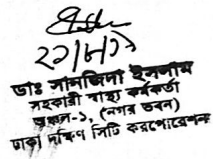 ২৭/৮/১৯
ডাঃ সানজিদা ইসলাম
সহকারী স্বাস্থ্য কর্মকর্তা
অঞ্চল-১, (নগর ভবন)
ঢাকা দক্ষিণ সিটি করপোরেশন